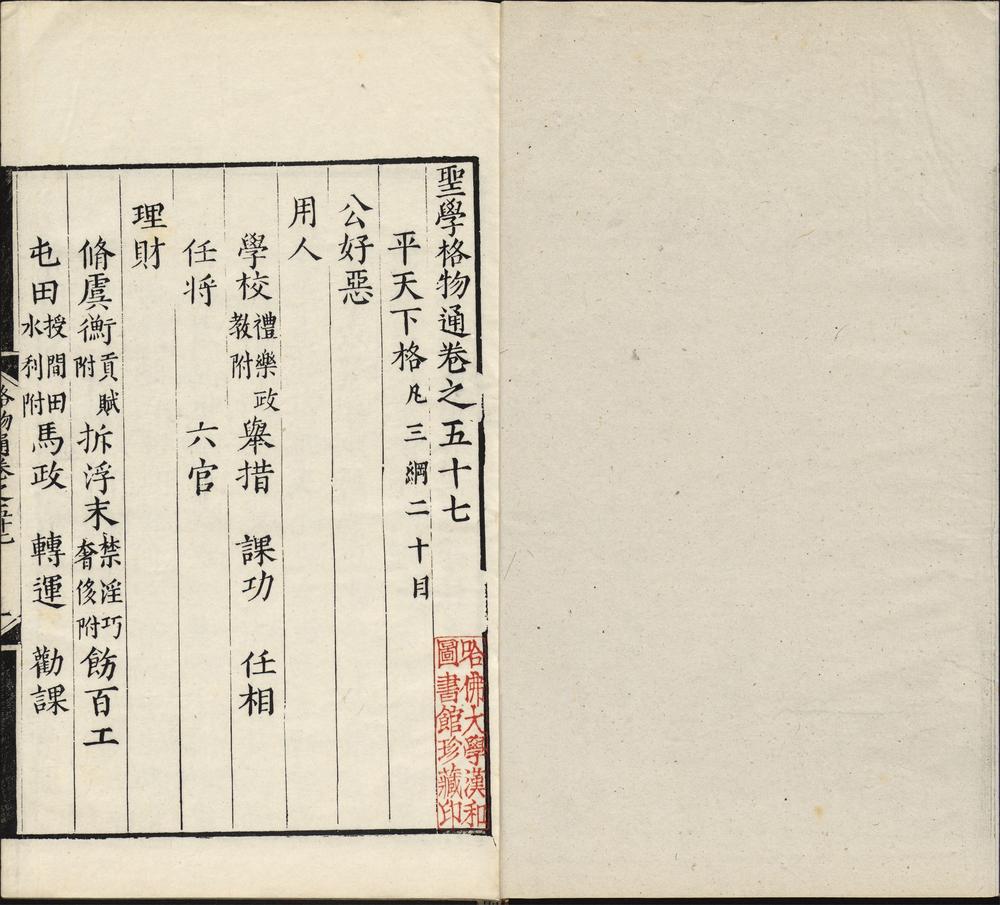 聖學格物通卷之五十七
平天下格凡三綱二十目
公好惡
用人
學校禮樂政教附舉措　課功　任相
任將　六官
理財
脩虞衡貢賦附拆浮末禁淫巧奢侈附飭百工
屯田授閒田水利附馬政　轉運　勸課
格物通卷之五十七
哈佛大學漢和圖書館珍藏印